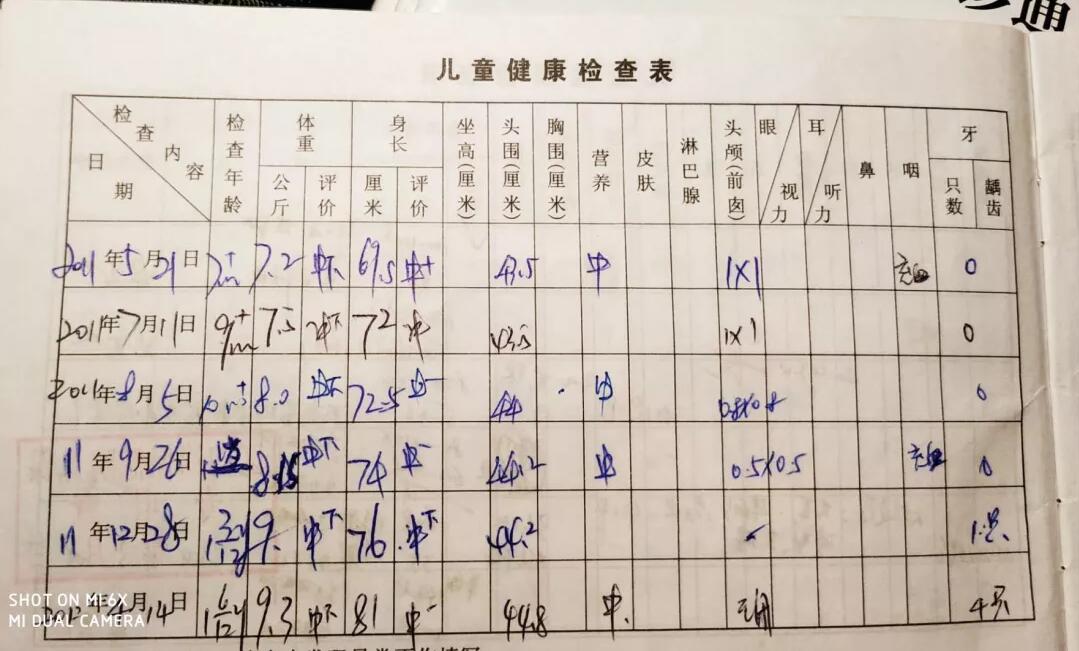 通
儿童健康检查表
检查内容 日期 检查年龄 体重 身长 坐高(厘米) 头围(厘米) 胸围(厘米) 营养 皮肤 淋巴腺 头颅(前囟) 眼 视力 耳 听力 鼻 咽 牙
公斤 评价 厘米 评价 只数 龋齿
2011年5月21日 7+m 7.2 中下 69.5 中+ 43.5 中 1×1 充血 0
2011年7月11日 9+m 7.5 中下 72 中 43.5 1×1 0
2011年8月5日 10m+ 8.0 中下 72.5 中- 44 中 0.8×0.8 0
11年9月26日 8.15 中下 74 中- 44.2 中 0.5×0.5 充血 0
11年12月28日 1 3/12y 9. 中下 76 中下 44.2 - 1只
2012年4月14日 1 6/12y 9.3 中下 81 中- 44.8 中 4只
SHOT ON MI 6X
MI DUAL CAMERA